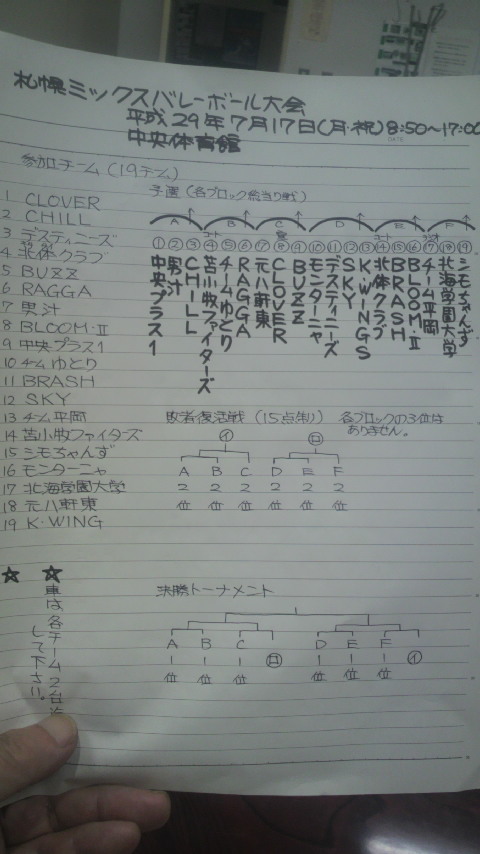 札幌ミックスバレーボール大会
平成29年7月17日(月・祝) 8:50〜17:00
中央体育館
参加チーム (19チーム)
1 CLOVER
2 CHILL
3 デスティニーズ
4 北体クラブ
5 BUZZ
6 RAGGA
7 男汁
8 BLOOM・II
9 中央プラス1
10 チームゆとり
11 BRASH
12 SKY
13 チーム平岡
14 苫小牧ファイターズ
15 シモちゃんず
16 モンターニャ
17 北海学園大学
18 元八軒東
19 K・WING
予選 (各ブロック総当り戦)
A B C D E F
① ② ③ ④ ⑤ ⑥ ⑦ ⑧ ⑨ ⑩ ⑪ ⑫ ⑬ ⑭ ⑮ ⑯ ⑰ ⑱ ⑲
中央プラス1
男汁
CHILL
苫小牧ファイターズ
チームゆとり
RAGGA
元八軒東
CLOVER
BUZZ
モンターニャ
デスティニーズ
SKY
K・WINGS
北体クラブ
BRASH
BLOOM・II
チーム平岡
北海学園大学
シモちゃんず
敗者復活戦 (15点制) 各ブロックの3位は
ありません。
イ ロ
A B C D E F
2 2 2 2 2 2
位 位 位 位 位 位
決勝トーナメント
A B C ロ D E F イ
1 1 1 1 1 1
位 位 位 位 位 位
☆ ☆
車は各チーム2台
して下さい。